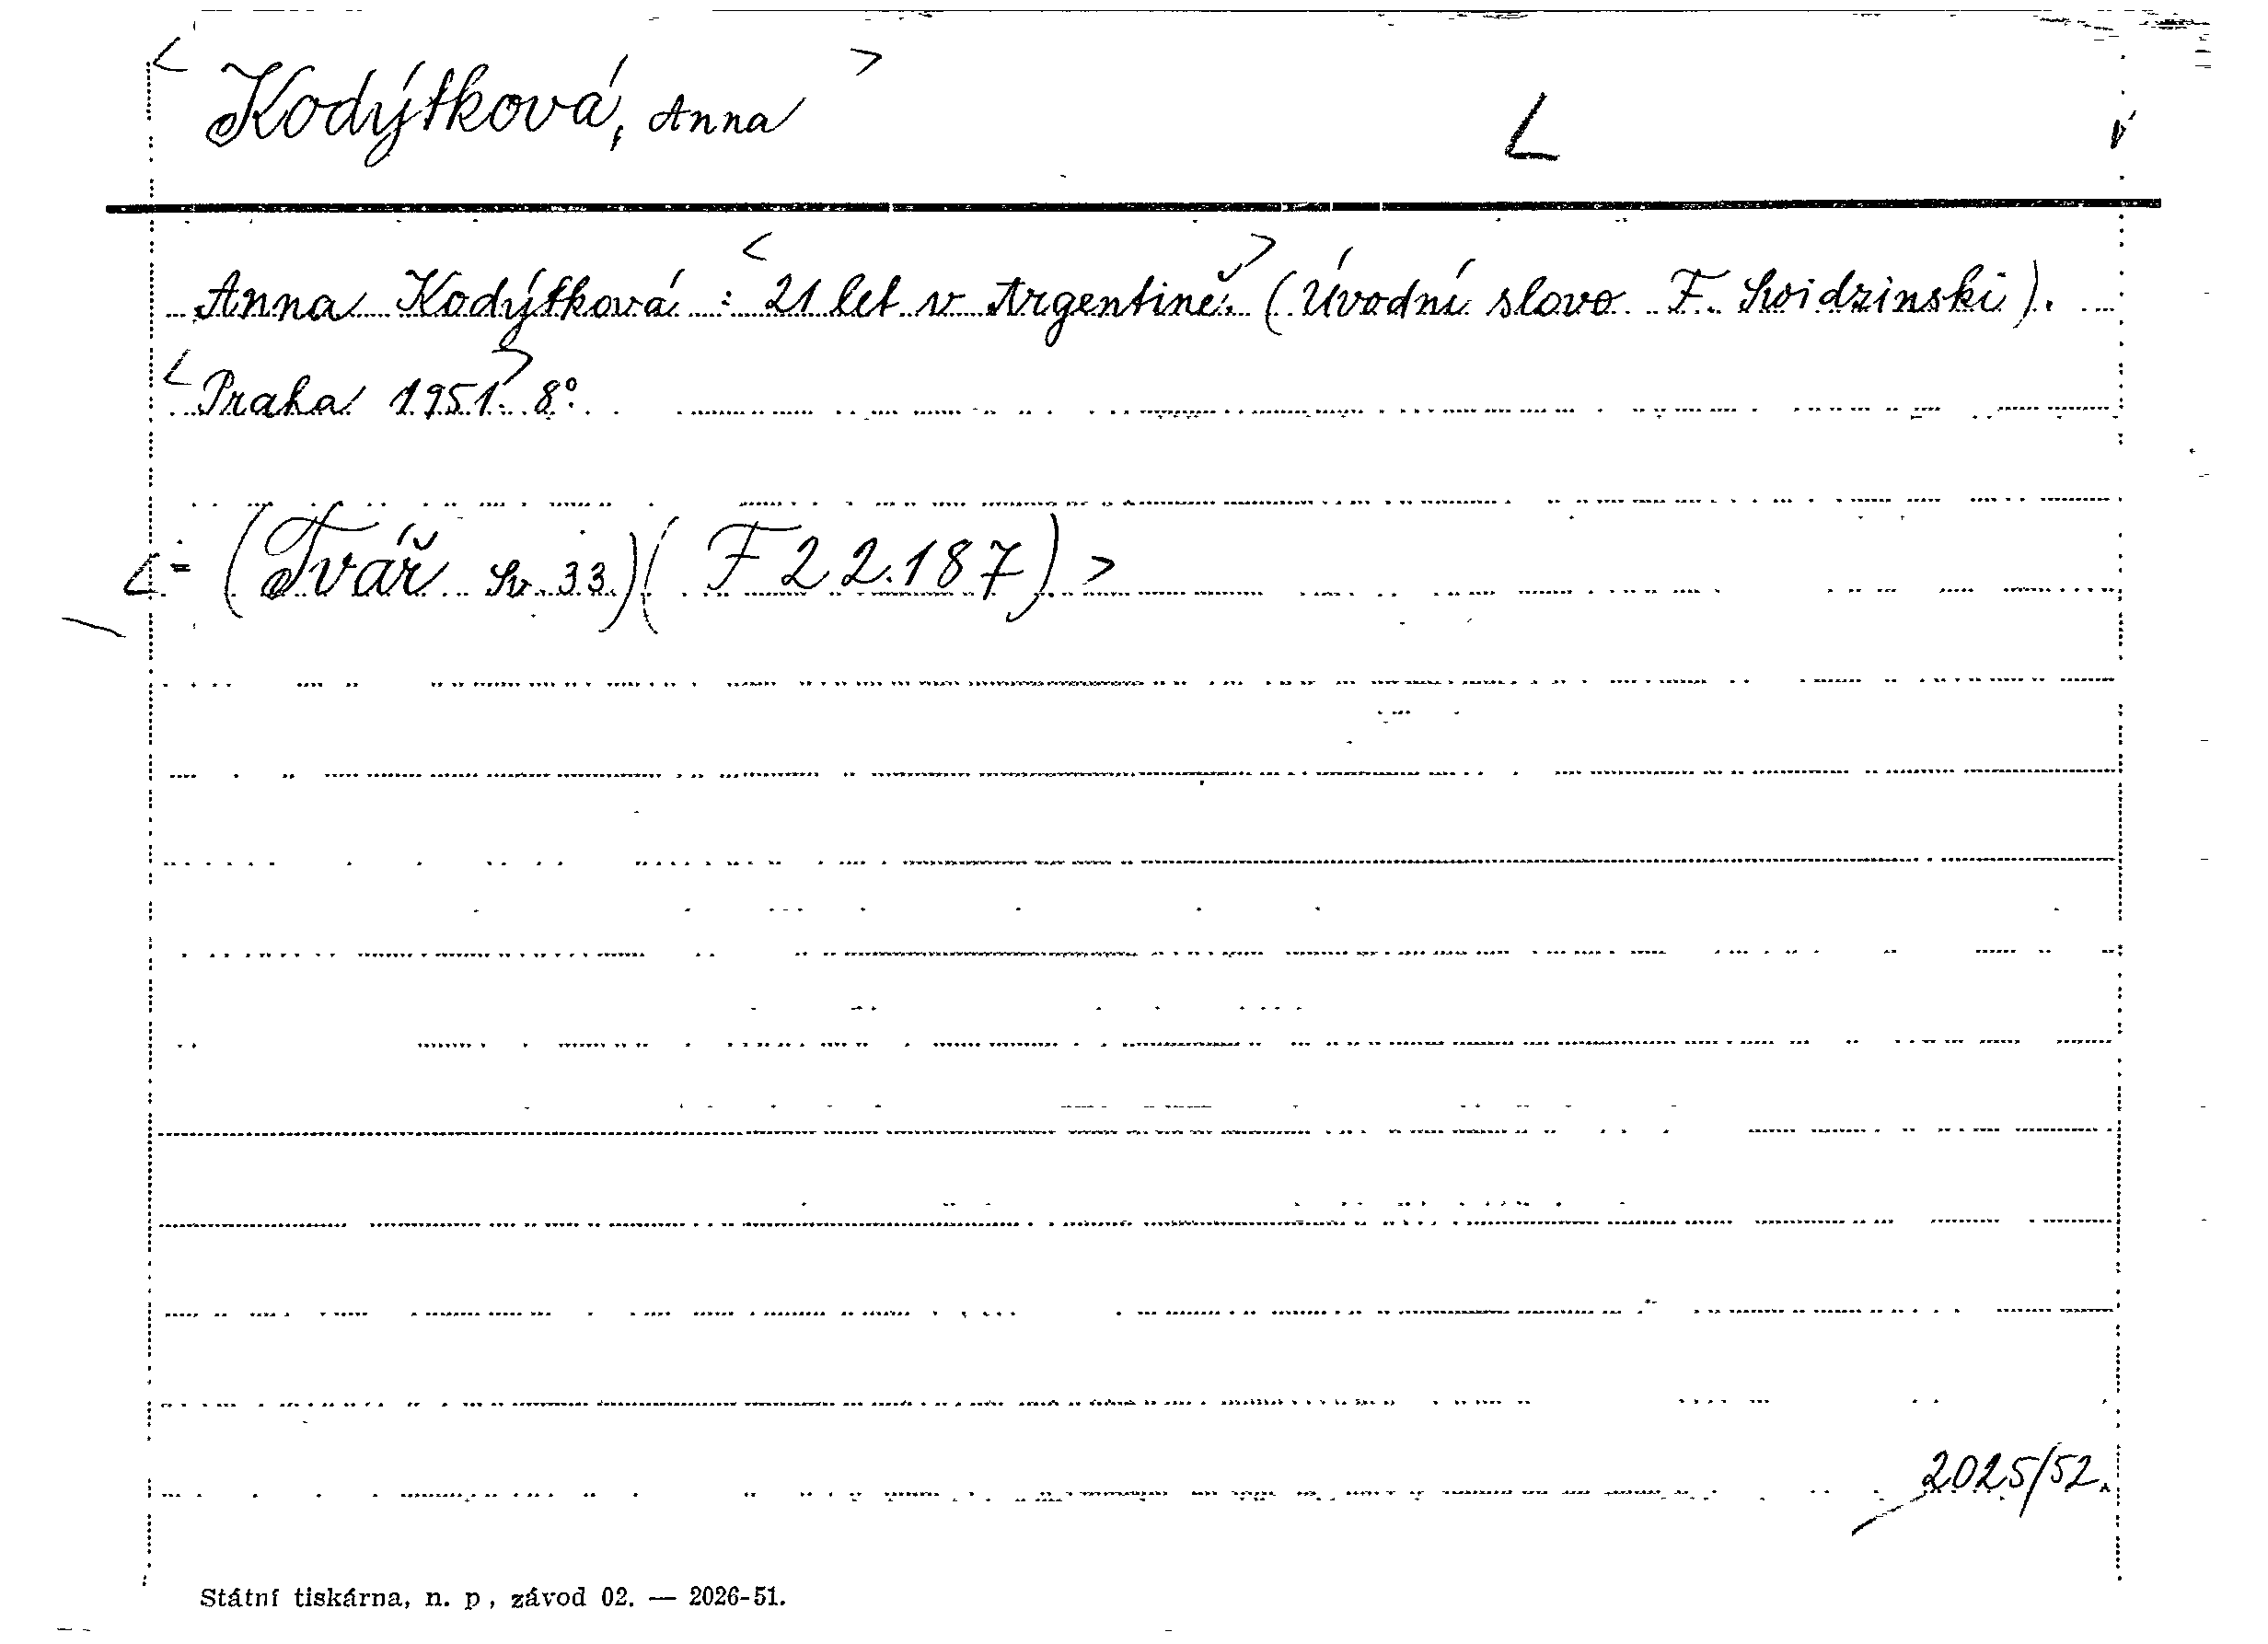 < Kodýtková, Anna > L
Anna Kodýtková : < 21 let v Argentině. > (Úvodní slovo F. Svidzinski).
< Praha 1951. > 8°.
< = (Tvář Sv. 33.)( F 22.187) >
2025/52.
Státní tiskárna, n. p , závod 02. — 2026-51.